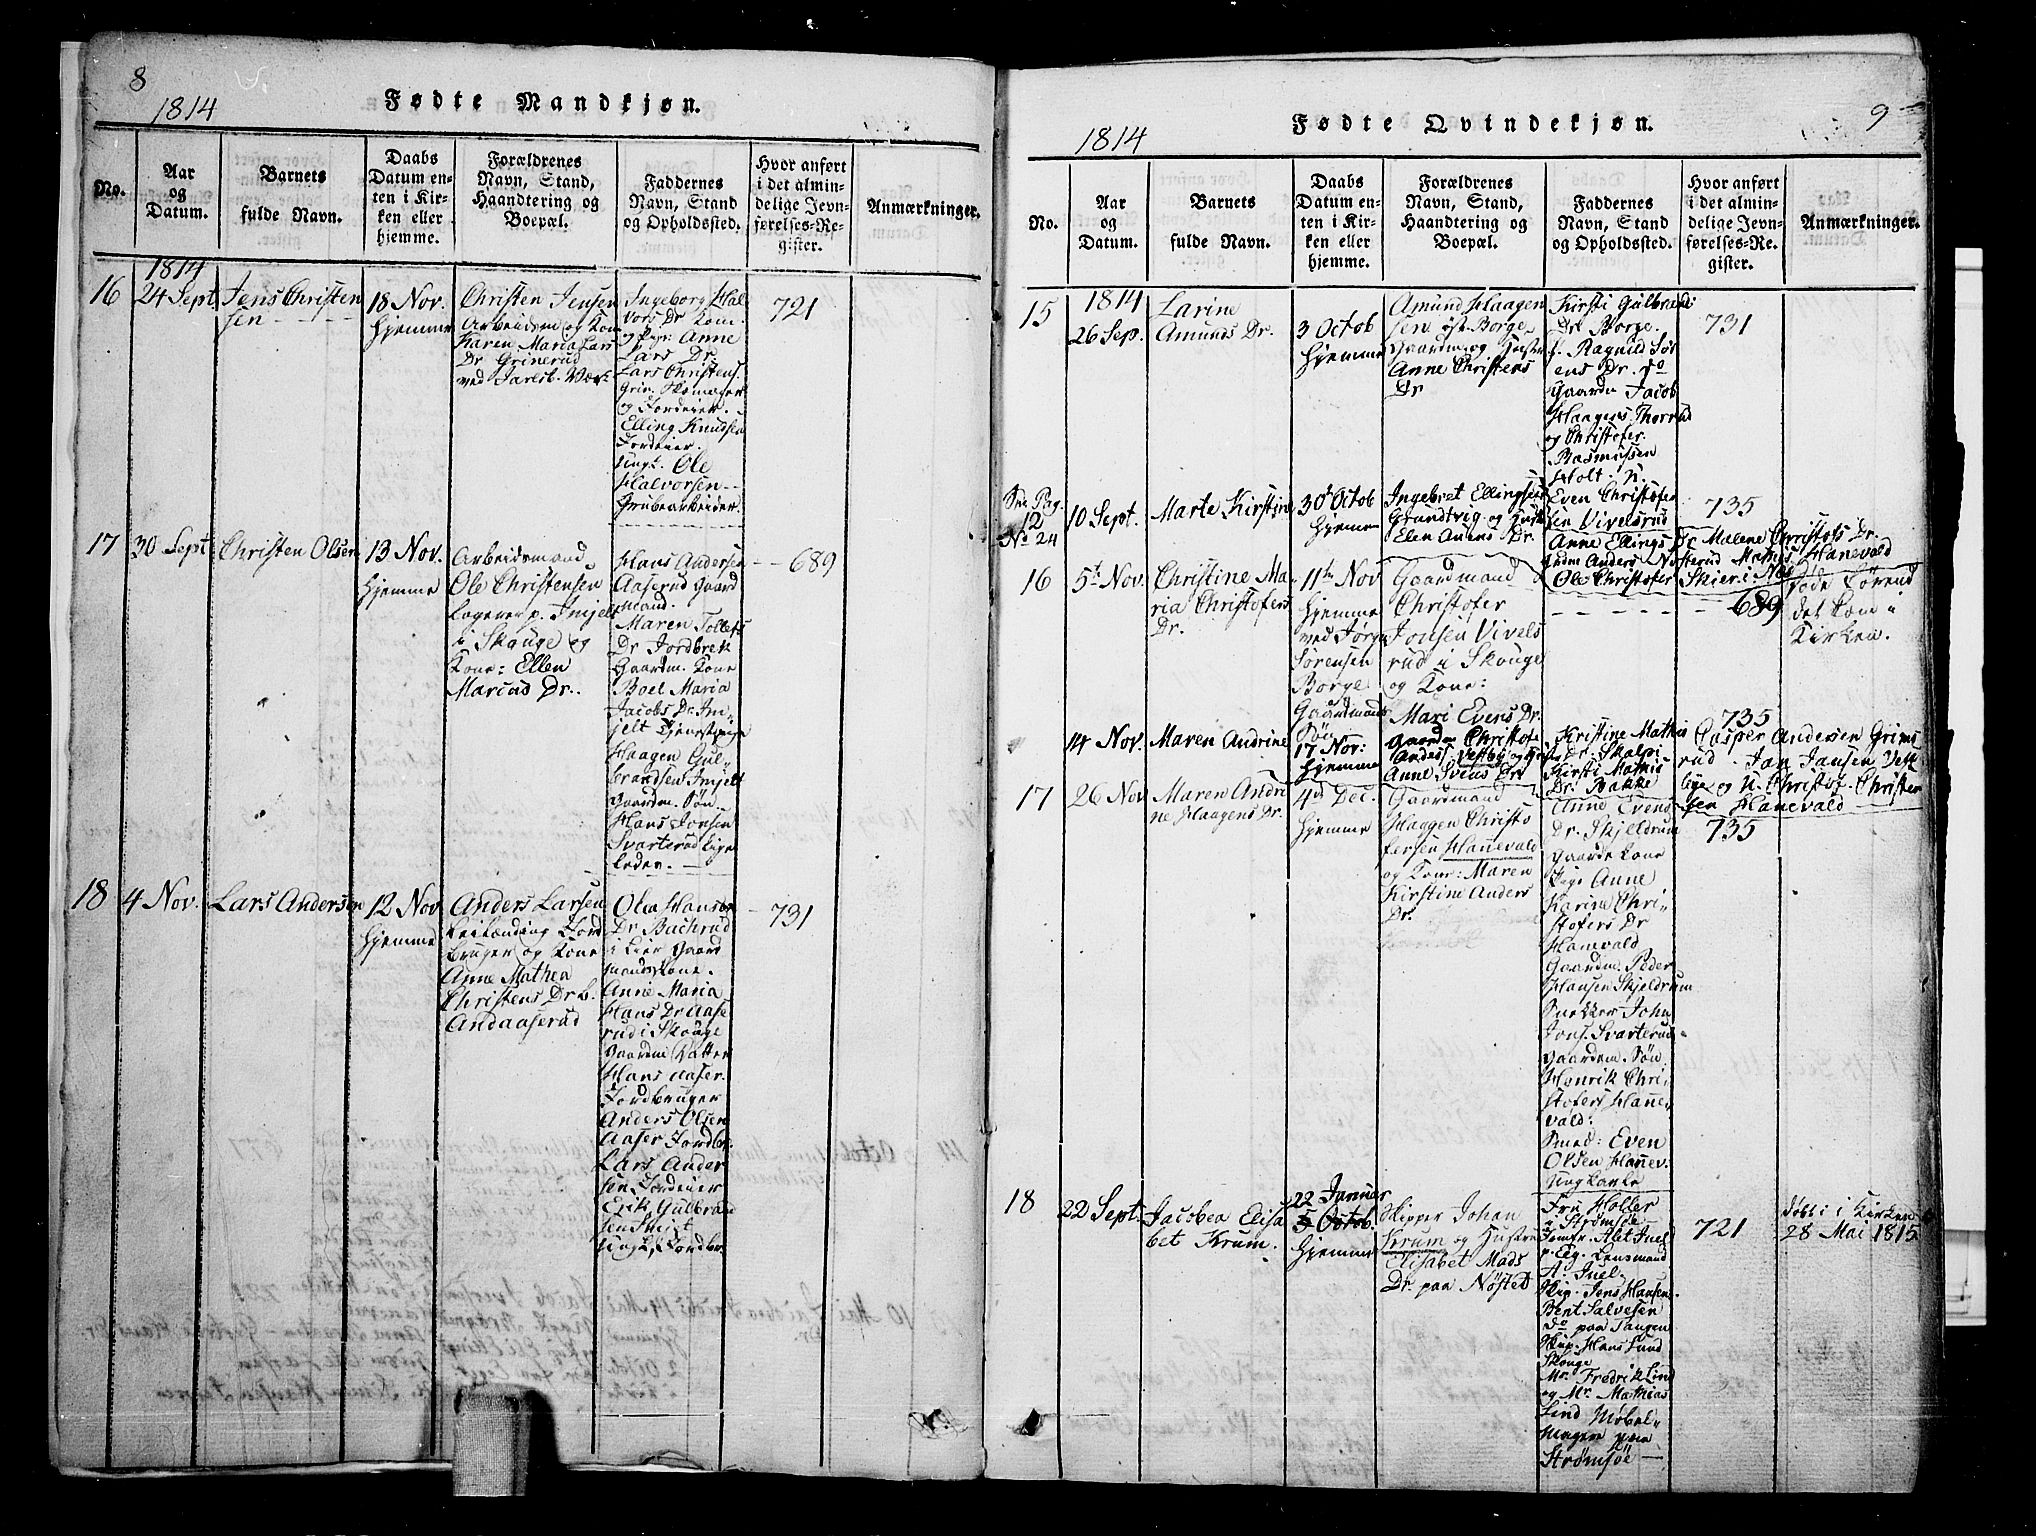 8
1814
Fødte Mandkjøn.
No.
Aar
og
Datum.
Barnets
fulde Navn.
Daabs
Datum en-
ten i Kir-
ken eller
hjemme.
Forældrenes
Navn, Stand,
Haandtering og
Boepæl.
Faddernes
Navn, Stand
og Opholdssted.
Hvor anført
i det almin-
delige Jevn-
førelses-Re-
gister.
Anmærkninger.
1814
16
24 Sept.
Jens Christen
sen
18 Nov.
Hjemme
Christen Jensen
Arbeidsm og Kon
Karen Maria Lars
Dr Grinerud
ved Jarlsb. Værk
Ingeborg Hal
vors Dr Kom.
Anne
Lars Dr.
Lars Christens
Grin. Skomager
og Jordeier.
Elling Knudsen
Jordeier.
Ungk. Ole
Halvorsen
Grubearbeider
721
17
30 Sept
Christen Olsen
13 Nov.
Hjemme
Arbeidsmand
Ole Christensen
Logerer p. Imjelt
i Skouge og
Kone: Ellen
Marcus Dr.
Hans Andersen
Aaserud Gaard
mand.
Maren Tollefs
Dr Jordbrek
Gaardm. Kone
Boel Maria
Jacobs Dr. Im
jelt Tjenestpige
Haagen Gul
brandsen Imjelt
Gaardm. Søn
Hans Jonsen
Svarterud lige
ledes.
689
18
4 Nov.
Lars Andersen
12 Nov
Hjemme
Anders Larsen
Leilænding Jord
bruger og Kone
Anne Mathea
Christens Dr
Andaaserud
Olea Hanse
Dr Bachrud
i Lier Gaard
mands Kone.
Anne Maria
Hans Dr Aase
rud i Skouge
Gaardm Datter
Hans Aaser.
Jordbruger
Anders Olsen
Aaser Jordbr.
Lars Ander
sen Jordeier
Erik Gulbrand
sen
Ungk. Jordbr.
731
9
1814
Fødte Qvindekjøn.
No.
Aar
og
Datum.
Barnets
fulde Navn.
Daabs
Datum en-
ten i Kir-
ken eller
hjemme.
Forældrenes
Navn, Stand,
Haandtering og
Boepæl.
Faddernes
Navn, Stand
og Opholdssted.
Hvor anført
i det almin-
delige Jevn-
førelses-Re-
gister.
Anmærkninger.
15
1814
26 Sep.
Larine
Amunds Dr.
3 Octob
Hjemme
Amund Haagen
sen øst. Borge
Gaardm. og Hustru
Anne Christens
Dr
Kirsti Gulbrands
Dr. Borge.
Ragnild Sør
ens Dr. do
Gaardm Jacob
Haagens Thorrud
og Christofer
Rasmussen
Holt. U.
731
See Pag.
12
No 24
10 Sept.
Marte Kirstine
30 Octob
Hjemme
Ingebret Ellingsen
Grundtvig og Hustru
Elen Anens Dr.
Even Christofer
sen Vivelsrud
Anne Ellings Dr Malene Christofs Dr.
Anders Nøsterud Mathis Hanevald
Ole Christofer Skier i Næs
735
16
5te Nov.
Christine Ma
ria Christofers
Dr.
11te Nov
Hjemme
ved Jørgen
Sørensen
Borge
Gaardmands
Søn
Gaardmand
Christofer
Jonsen Vivels
rud i Skouge
og Kone:
Mari Evens Dr.
689
Døde førend
det kom i
Kirken.
14 Nov.
Maren Andrine
17 Nov:
Hjemme
Gaardm Christofer
Anders Vestby og Hust
Anne Svens Dr
Kristine Mathis
Dr. Skalpi
Kirsti Mathis
Dr. Bakke
735
Casper Andersen Grims
rud. Jan Jansen Vest
bye og U. Christof. Christen
sen Hanevald
17
26 Nov
Maren Andri
ne Haagens Dr.
4de Dec.
Hjemme
Gaardmand
Haagen Christo
fersen Hannevald
og Kone: Maren
Kirstine Anders
Dr.
Anne Evens
Dr. Skjeldrum
Gaardm Kone
Pige Anne
Karine Chri
stofers Dr
Hanevald
Gaardm. Peder
Hansen Skjeldrum
Snekker John
Jons. Svarterud
Gaardm. Søn
Henrik Chri
stofers Hanne
vald:
Smed: Even
Olsen Hannev.
Ungkarle
735
18
22 Sept.
Jacobea Elisa
bet Krum.
22 Januar
5 Octob.
Hjemme
Skipper Johan
Krum og Hustru
Elisabet Mads
Dr. paa Nøsted
Fru Holler
i Strømsøe
Jomfr. Alet Juel
p. Eg. Lensmand
A. Juel.
Skip. Jens Hansen.
Bent Salvesen
do paa Tangen
Skip. Hans Lund
Skouge
Mr. Fredrik Lind
og Mr. Mathias
Lind Møbel-
magere paa
Strømsøe
721
Døbt i Kirken
28 Mai 1815